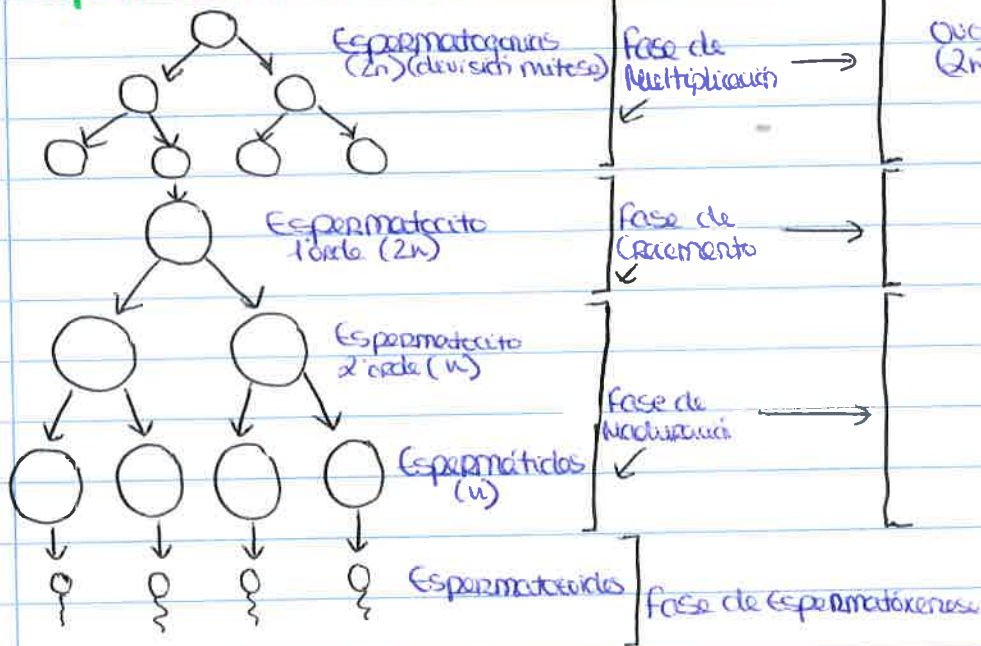 Espermatogonias
(2n) (división mitose)
Fase de
Multiplicación
(2n
Espermatocito
1ª orde (2n)
Fase de
Crecemento
Espermatocito
2ª orde (n)
Fase de
Maduración
Espermátidas
(n)
Espermatozoides
Fase de Espermatoxenese